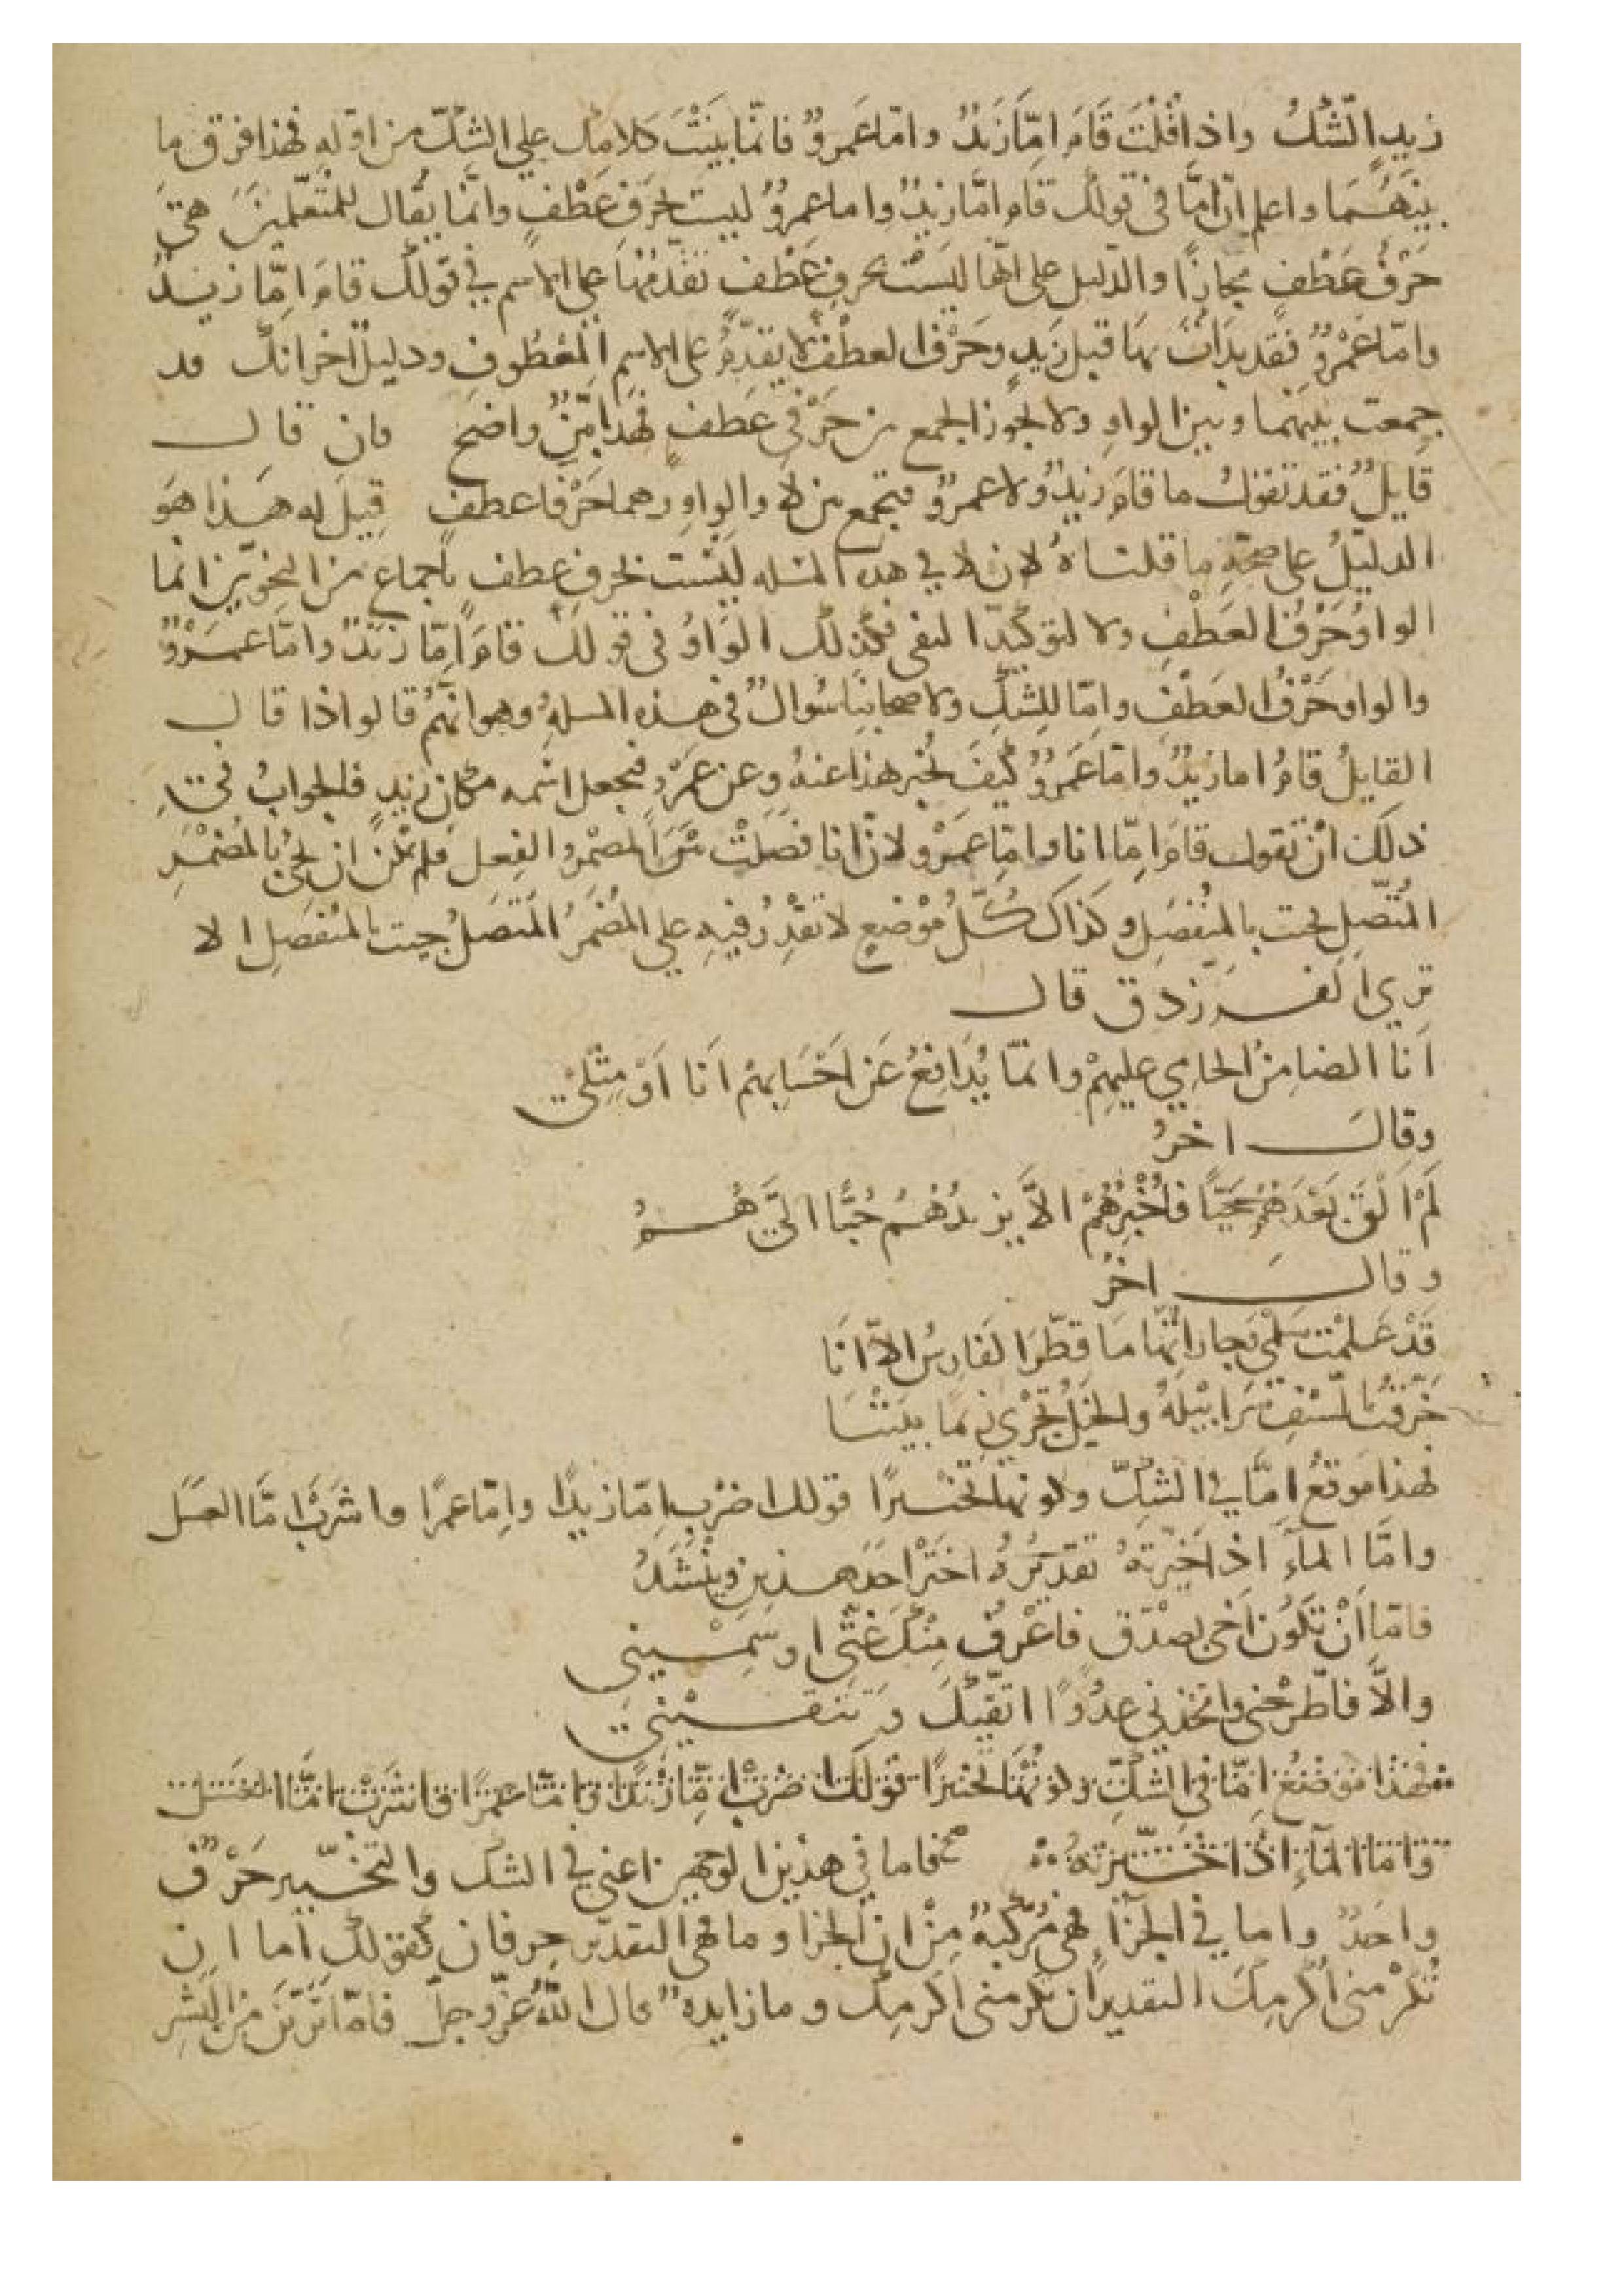 زيدٍ الشكُ واذا قلتَ قَامَ امَّا زَيدٌ وامّا عَمروٌ فانّما بَنَيْتَ كلامك علي الشكّ من اوّله فهذا فرق ما
بينهُمَا واعلم انّ امَّا في قولك قام امَّا زيدٌ واما عمروٌ ليست بحَرفِ عَطْفٍ وانَّما يقال للمتعَلّمينَ هيَ
حَرْفُ عَطْفٍ مجازًا والدّليل على انّها ليَسَتْ بحرفِ عَطْفٍ تقدّمُهَا على الاسم في قولك قامَ امِّا زيدٌ
وامّا عَمْروٌ فقد بدَاتَ بهَا قبل زَيدٍ وحَرْفُ العطْفِ لا يتقدّمُ على الاسمِ المعْطُوفِ ودليلٌ اخر انكَّ قد
جمعت بينهَما وبين الواوِ ولا يجوز الجمع بين حَرْفي عَطفٍ فهَذا بيّنٌ واضح فان قال
قايلٌ فقد تقولُ ما قامَ زيدٌ ولا عمروٌ فتجمع بين لا والواوِ وهما حَرْفا عطفٍ قِيلَ له هذا هوَ
الدليلُ على صحّةِ ما قلناهُ لان لا في هذه المسله ليْسَت بحرف عطف باجماع من النحويّين انما
الواوُ حَرْفُ العَطْفِ ولا لتوكيد النفي فكذلك الوَاوُ في قولكَ قامَ اِمّا زيدٌ وامّا عَمْروٌ
والواو حَرْفُ العَطْفِ وامّا للشكِّ ولاصحابنَا سُوالٌ في هذه المسلهِ وهو انهّمُ قالوا اذا قال
القايلُ قامَ اما زيدٌ وامّا عَمروٌ كيفَ تُخبر هذا عنهُ وعن عَمْروٍ فتجعل اسمه مكان زيدٍ فالجوابُ في
ذلكَ انْ تقول قامَ اِمّا انا وامّا عَمرْو لانّ انا فصَلَتْ بَيْنَ المضمر والفِعل فلم يمكن ان تجيَ بالمُضمْرِ
المتّصلِ جيت بالمنْفصَلِ وكذاك كلُّ موْضعٍ لا تقْدِرُ فيهِ علي المُضمَرُ المتصَلُ جيت بالمنفصَلِ الا
تري الفرزدق قال
اَنا الضامِنُ الحامِي عليهِمْ وانّما يُدَافِعُ عَن اَحْسَابِهِمُ اَنَا اَوْ مِثْلي
وقالَ اخرُ
لَمْ اَلْقَ بَعْدَهُمُ حَيًّا فاُخْبِرُهُمْ الاَّ يزيدُهُمُ حُبًّا اليَّ هُمُ
وقالَ اخرُ
قَدْ عَلِمْت سَلْمَي وجارَاتُهَا مَا قطّرَ الفَارِسَ الاّ انَا
خَرّقْتُ بالسّيْفِ سَرَابيْلَهُ والخيْلُ تجْرِي زِيَمًا بيننَا
فهَذا مَوقعُ اِمَّا في الشكِّ وكونها تخيْيرًا قولك اضرْب اِمّا زيدًا واِمّا عمرًا واشرَبْ امَّا العسَل
وامَّا الماَءَ اذا خيّرتَهُ تقدّيرُهُ اخترْ احَدَ هذينِ ويُنْشَدُ
فامّا اَنْ تكوُن اَخي بصدْق فاَعْرفُ مِنْكَ غَثّي او سَمِيني
والاَّ فاطّرِحْني واتّخذني عدُوًّا اتقّيْكَ وتتّقيْني
فهذا موضعُ اِمّا في الشكّ وكونُهَا تخييرًا قولكَ اضربْ امِّا زيْدًا وامّا عمرًا واشرَبْ امَّا العسَل
وَامّا الماءَ اذا خيَّرتهُ فاما في هذين الوجهين اعني في الشك والتخيير حَرْفٌ
واحَدٌ واما في الجزآءِ فهي مُركّبةٌ مِنْ ان الجزا وما فهي التقدير حرفان كقولك اما ان
تُكرمْني اُكْرمِكَ التقدير ان تكرمنى اكرمِك وما زايدهٌ قال اللّهُ عزّ وجلّ فامّا تَرَينَ مِنَ البَشَرِ